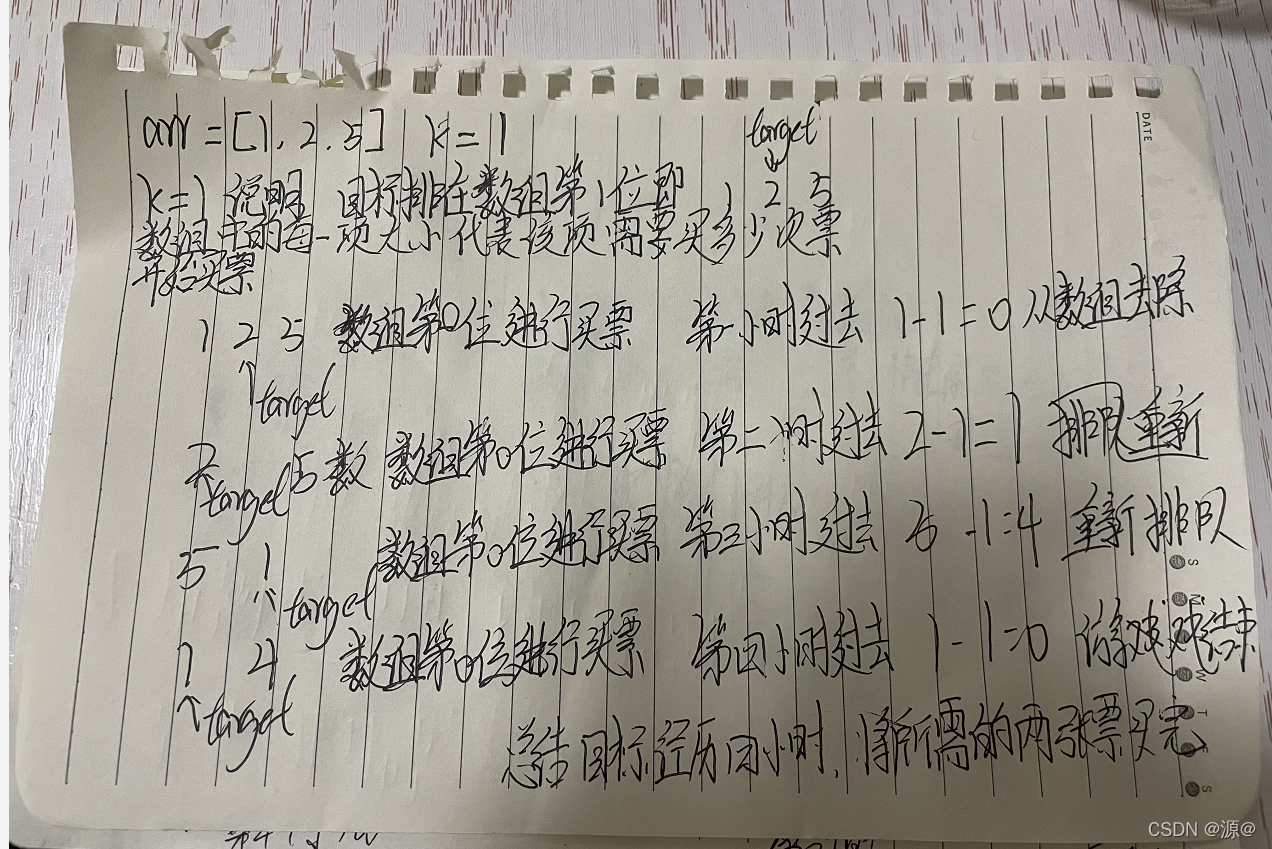 arr = [1, 2, 5] k = 1
target
k=1 说明 目标排在数组第1位即 1 2 5
数组中的每一项大小代表该项需要买多少次票
开始买票
1 2 5 数组第0位进行买票 第一小时过去 1-1=0 从数组去除
target
2 5 数 数组第0位进行买票 第二小时过去 2-1=1 排队重新
target
5 1 数组第0位进行买票 第三小时过去 5-1=4 重新排队
target
1 4 数组第0位进行买票 第四小时过去 1-1=0 结束
target
总结 目标经历四小时, 将所需的两张票买完
DATE
S
M
T
W
T
F
S
CSDN @源@